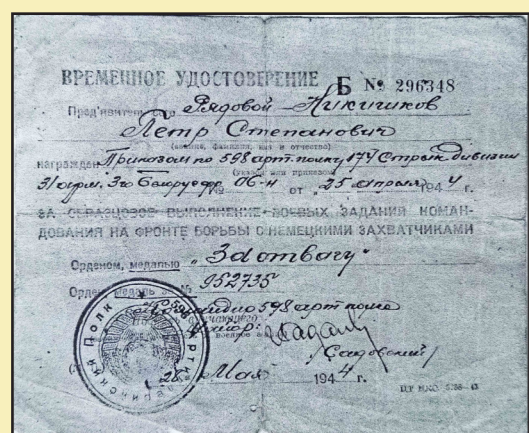 ВРЕМЕННОЕ УДОСТОВЕРЕНИЕ Б № 296348
Пред'явитель сего Рядовой Никичиков
Петр Степанович
(звание, фамилия, имя и отчество)
награжден Приказом по 598 арт. полку 174 Стрелк. дивизии
(указом или приказом)
31 Белорусс. № 06-н от "25 апреля 1944 г.
ЗА ОБРАЗЦОВОЕ ВЫПОЛНЕНИЕ БОЕВЫХ ЗАДАНИЙ КОМАН-
ДОВАНИЯ НА ФРОНТЕ БОРЬБЫ С НЕМЕЦКИМИ ЗАХВАТЧИКАМИ
Орденом, медалью „За отвагу"
Орден медаль № 952735
598 арт полка
/Садовский/
Мая 1944 г.